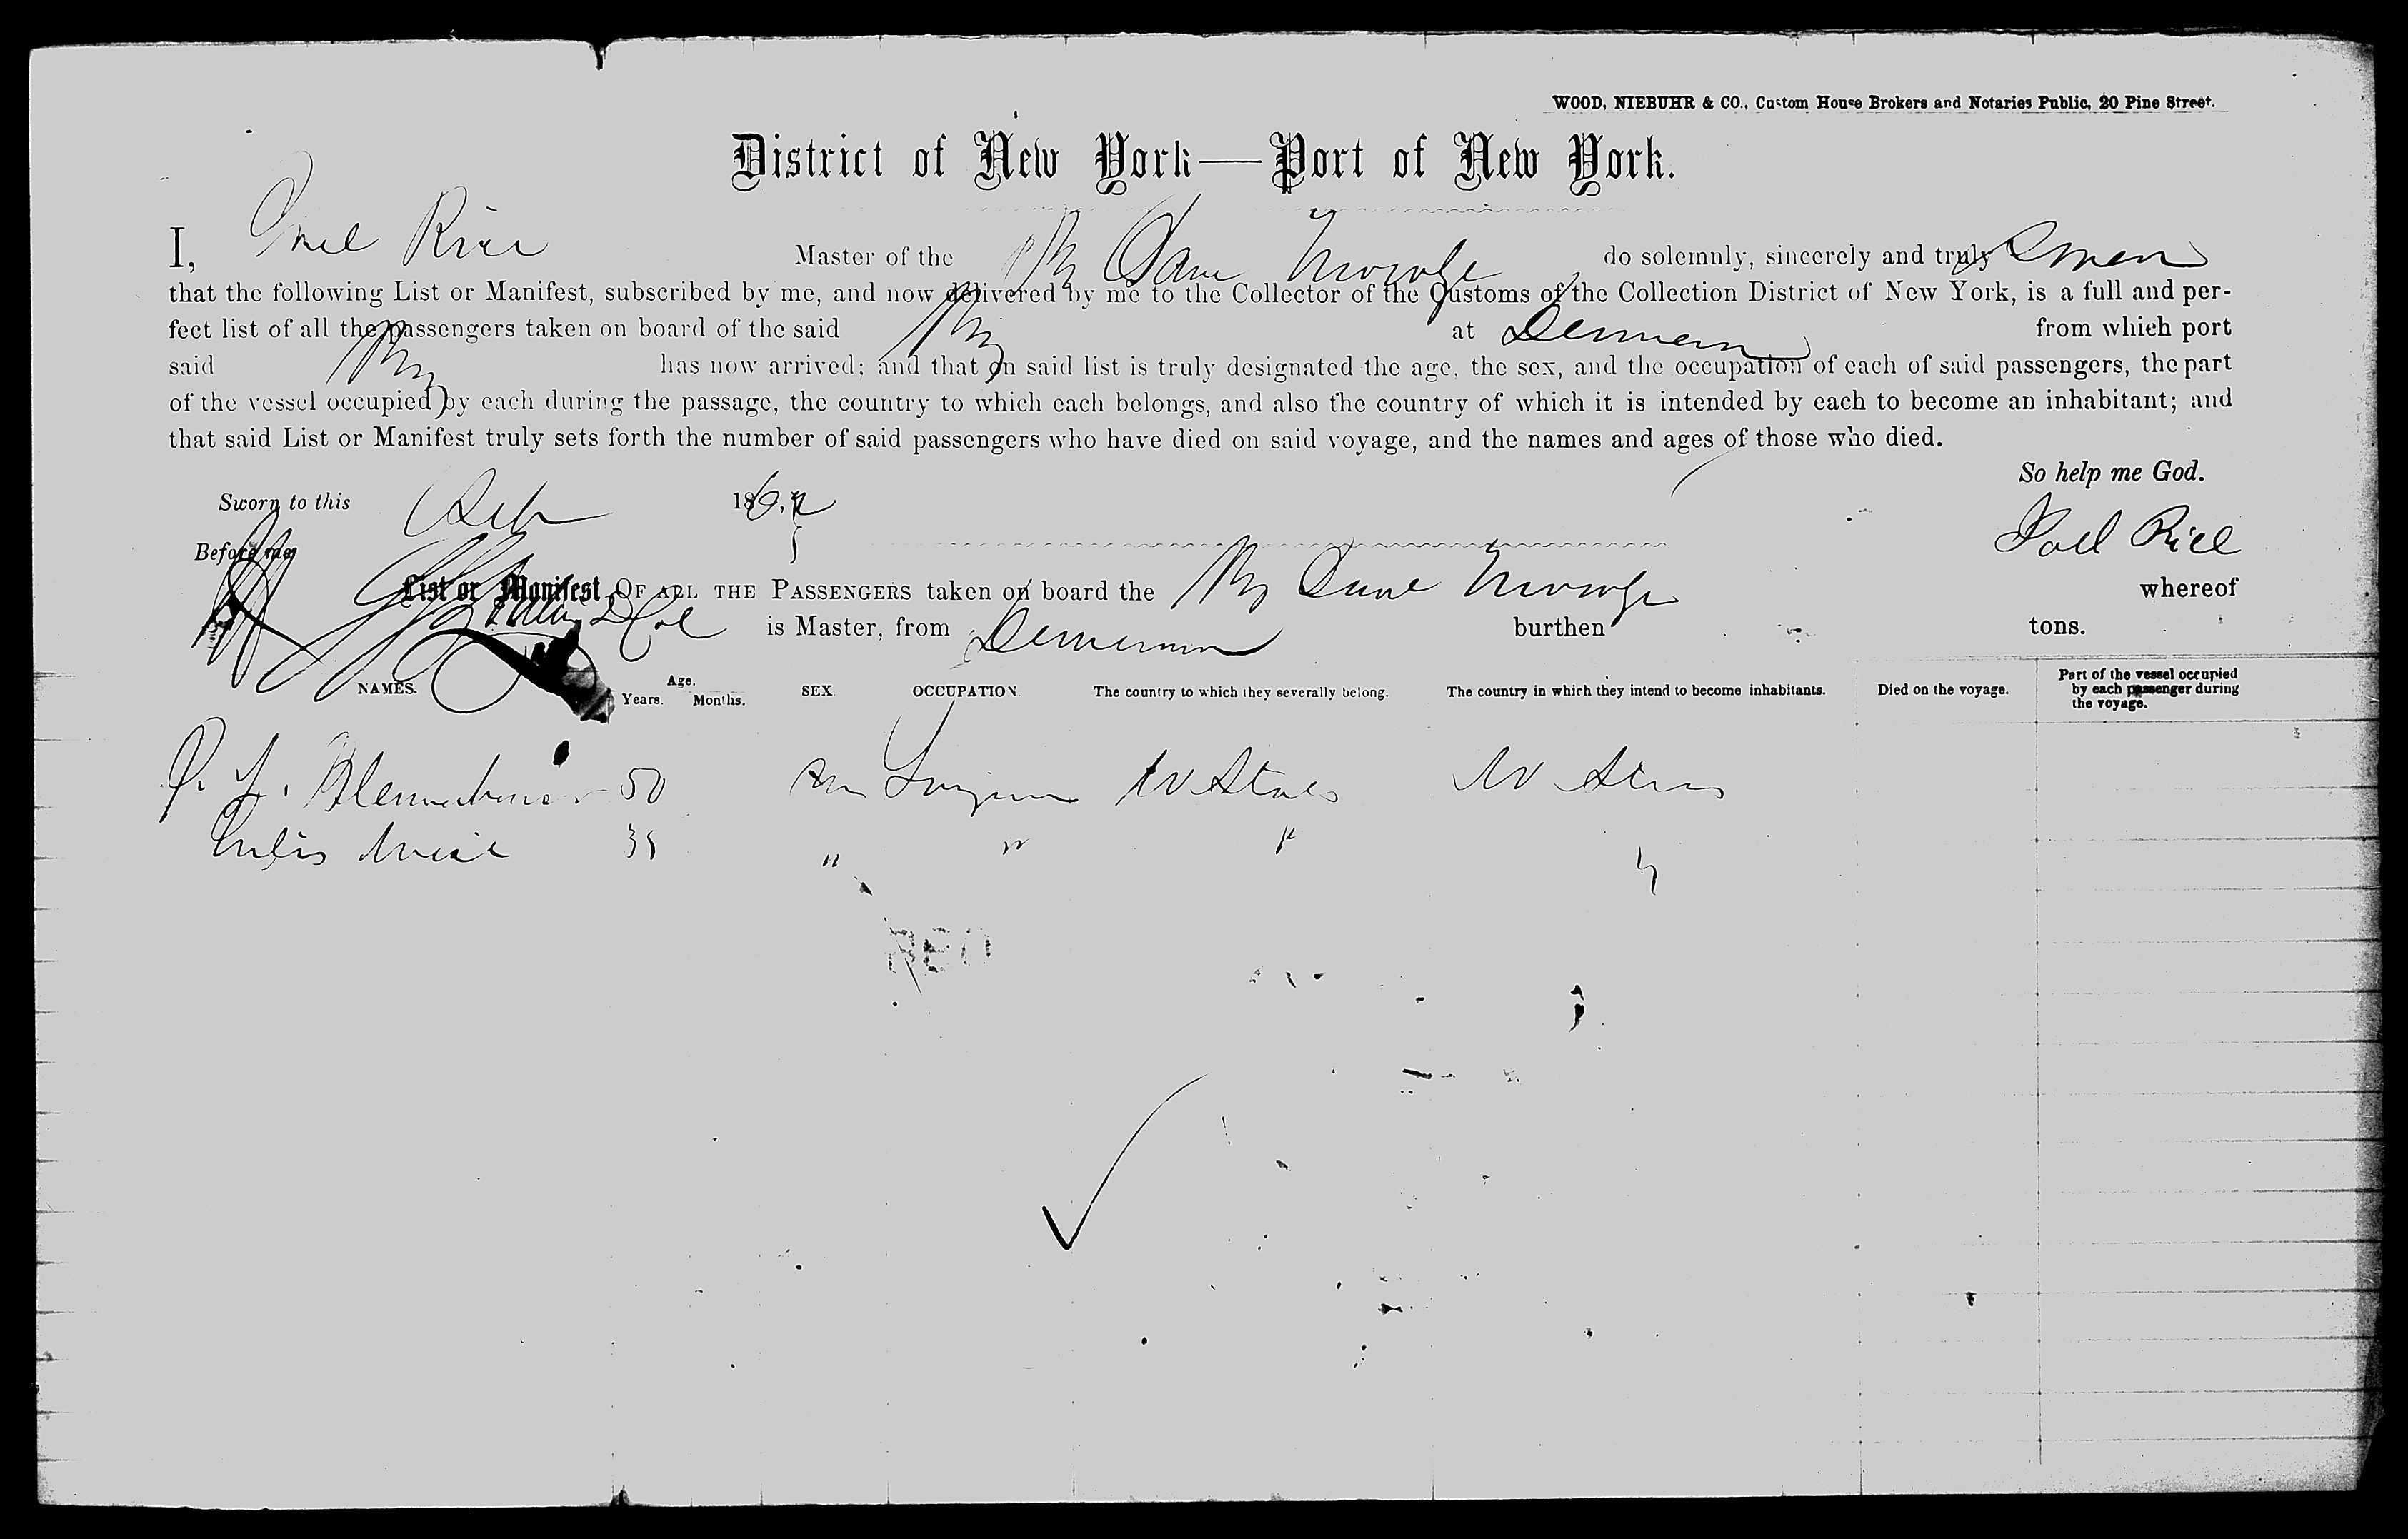 WOOD, NIEBUHR & CO., Custom House Brokers and Notaries Public, 20 Pine Street.
District of New York—Port of New York.
I, Joel Rice Master of the do solemnly, sincerely and truly Swear
that the following List or Manifest, subscribed by me, and now delivered by me to the Collector of the Customs of the Collection District of New York, is a full and per-
fect list of all the passengers taken on board of the said at from which port
said has now arrived; and that on said list is truly designated the age, the sex, and the occupation of each of said passengers, the part
of the vessel occupied by each during the passage, the country to which each belongs, and also the country of which it is intended by each to become an inhabitant; and
that said List or Manifest truly sets forth the number of said passengers who have died on said voyage, and the names and ages of those who died.
So help me God.
Sworn to this 186
Before me Joel Rice
List or Manifest OF ALL THE PASSENGERS taken on board the whereof
is Master, from burthen tons.
NAMES. Age. Years. Months. SEX. OCCUPATION. The country to which they severally belong. The country in which they intend to become inhabitants. Died on the voyage. Part of the vessel occupied by each passenger during the voyage.
50 U States U States
35 " " " "